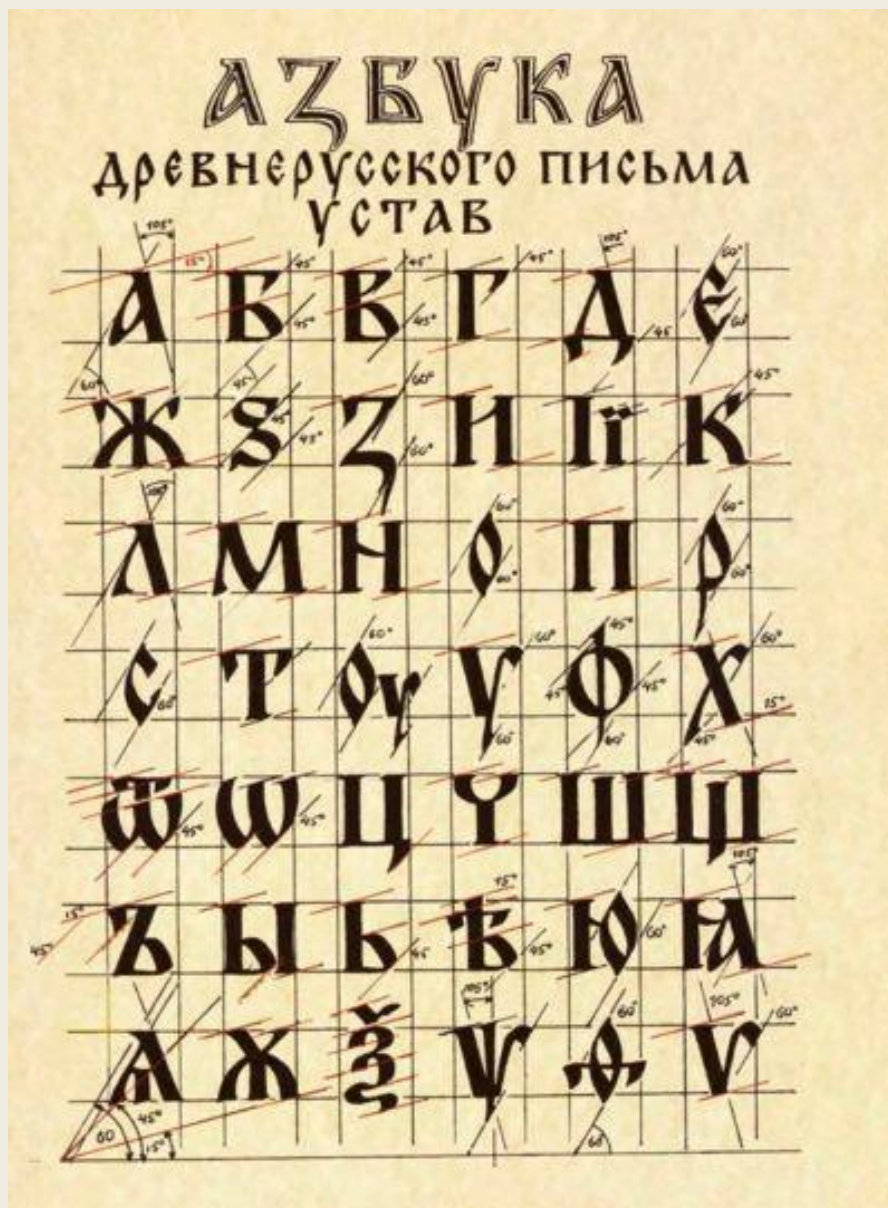 АЗБУКА
ДРЕВНЕРУССКОГО ПИСЬМА
УСТАВ
105° 15° 45° 45° 45° 105° 60°
А Б В Г Д Є
45° 45° 45 60°
60° 45° 60° 45°
Ж Ѕ З И Ї К
45° 45° 60°
105° 60° 60°
Л М Н О П Р
60° 60°
60° 60° 45° 60°
С Т Оу У Ф Х
60° 60° 45° 45° 60° 45° 15°
Ѿ Ѡ Ц Ч Ш Щ
45° 45° 105°
15° 15°
Ъ Ы Ь Ѣ Ю Ꙗ
45° 45 45° 60°
105° 60° 105° 60°
Ѧ Ѫ Ѯ Ѱ Ѳ Ѵ
60 45° 15° 60°